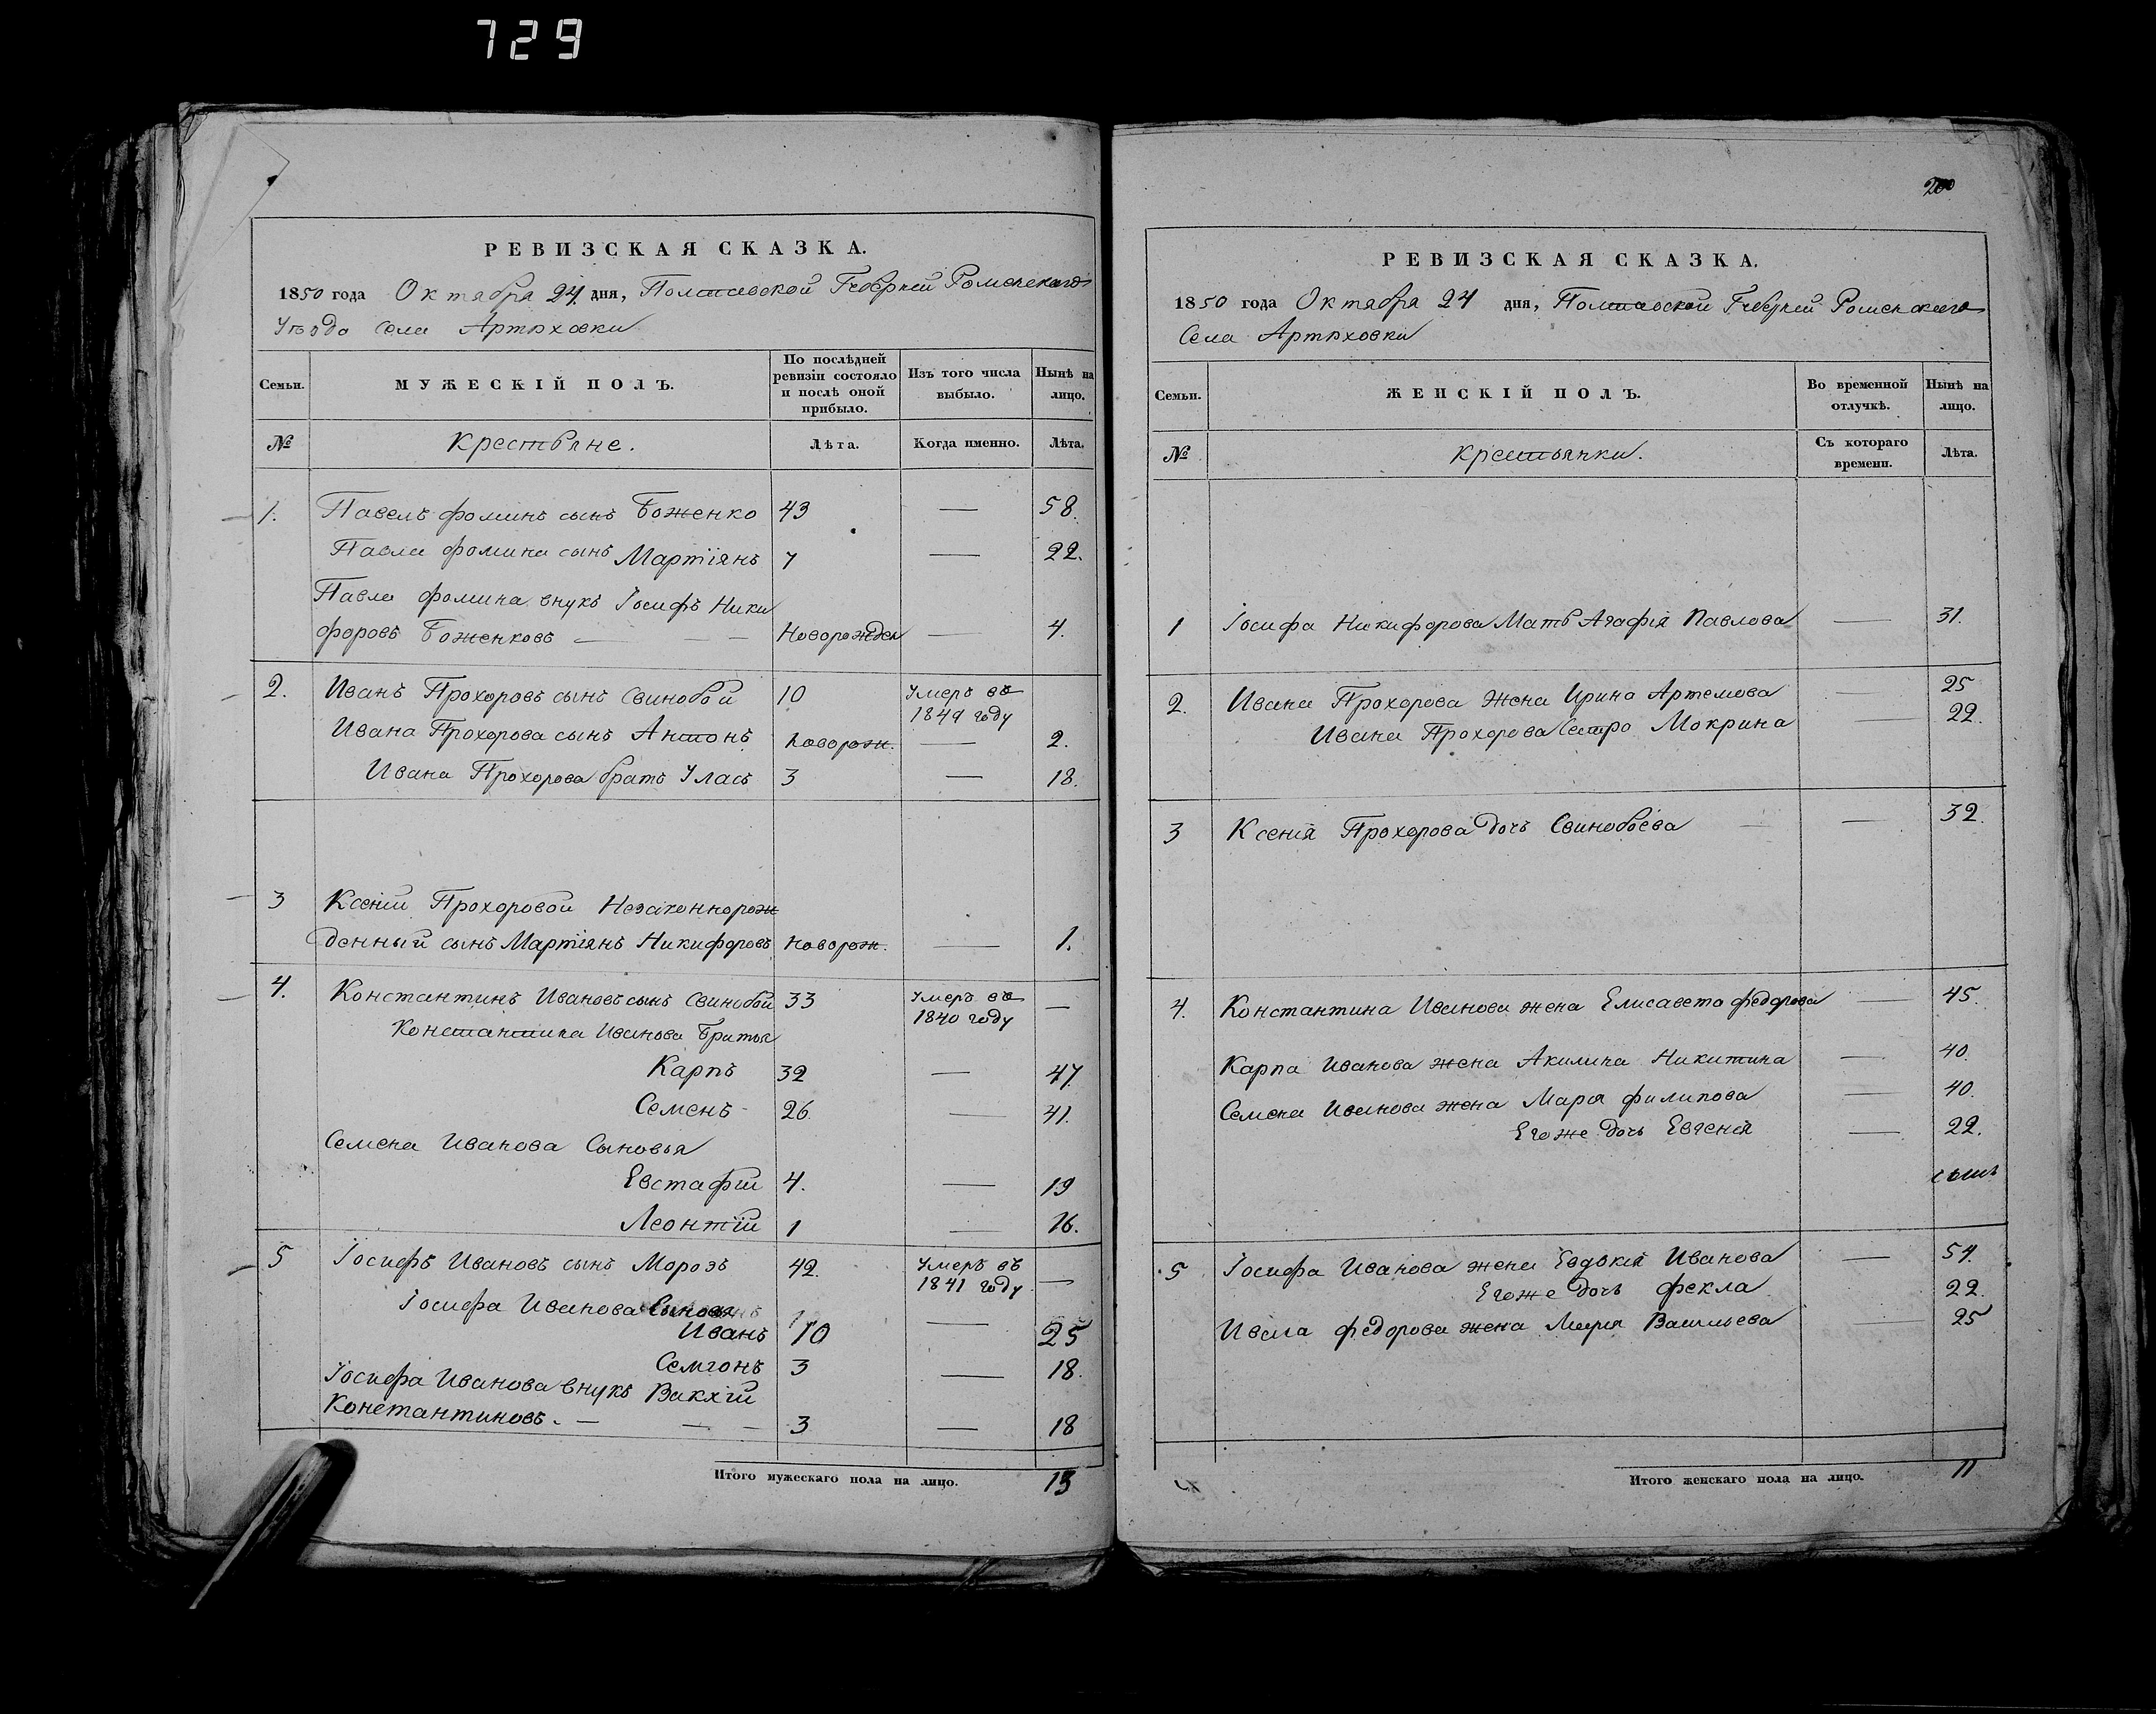 729
РЕВИЗСКАЯ СКАЗКА.
1850 года Октября 24 дня, Полтавской Губерніи Роменскаго
Уѣзда Села Артюховки
Семьи. МУЖЕСКІЙ ПОЛЪ. По послѣдней ревизіи состояло и послѣ оной прибыло. Изъ того числа выбыло. Нынѣ на лицо.
№ Крестьяне. Лѣта. Когда именно. Лѣта.
1. Павелъ Фоминъ сынъ Боженко 43 — 58.
Павла Фомина сынъ Мартіянъ 7 — 22.
Павла Фомина внукъ Іосифъ Ники
форовъ Боженковъ — — Новорожден — 4.
2. Иванъ Прохоровъ сынъ Свинобой 10 Умеръ въ 1849 году
Ивана Прохорова сынъ Антонъ новорож. — 2.
Ивана Прохорова братъ Уласъ 3 — 18.
3 Ксеніи Прохоровой Незаконнорож
денный сынъ Мартіянъ Никифоровъ новорож. — 1.
4. Константинъ Ивановъ сынъ Свинобой 33 Умеръ въ 1840 году —
Константина Иванова Братья
Карпъ 32 — 47.
Семенъ 26. — 41.
Семена Иванова Сыновья
Евстафій 4. — 19
Леонтій 1 — 16.
5 Іосифъ Ивановъ сынъ Морозъ 42. Умеръ въ 1841 году —
Іосифа Иванова Сыновья
Иванъ 10 — 25
Семіонъ 3 — 18.
Іосифа Иванова внукъ Вакхій
Константиновъ. — — — 3 — 18
Итого мужескаго пола на лицо. 13
200
РЕВИЗСКАЯ СКАЗКА.
1850 года Октября 24 дня, Полтавской Губерніи Роменскаго
Села Артюховки
Семьи. ЖЕНСКІЙ ПОЛЪ. Во временной отлучкѣ. Нынѣ на лицо.
№ Крестьянки. Съ котораго времени. Лѣта.
1 Іосифа Никифорова Мать Агафія Павлова — 31.
2. Ивана Прохорова Жена Ирина Артемова — 25
Ивана Прохорова Сестра Мокрина — 22.
3 Ксенія Прохорова дочь Свинобоева — — 32.
4. Константина Иванова жена Елисавета Федорова — 45.
Карпа Иванова жена Акилина Никитина — 40.
Семена Иванова жена Марія Филипова — 40.
Его же дочь Евгенія — 22.
5 Іосифа Иванова жена Евдокія Иванова — 54.
Его же дочь Фекла 22.
Ивана Федорова жена Марія Васильева — 25
Итого женскаго пола на лицо. 11